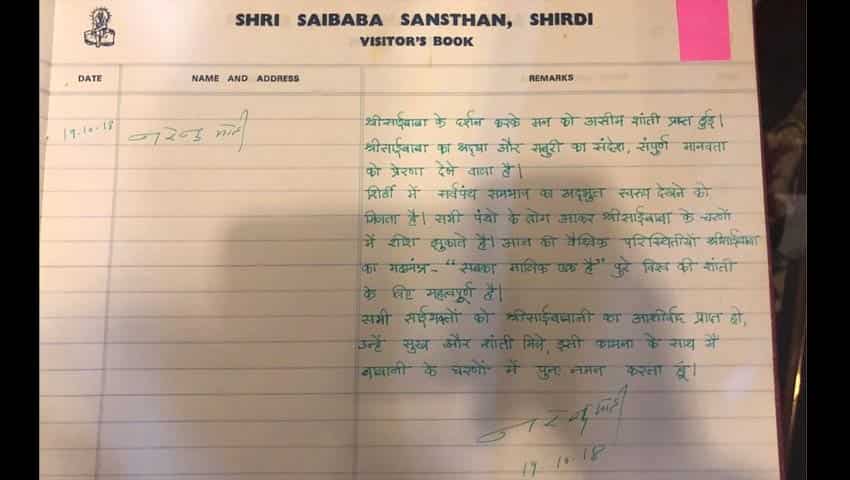 SHRI SAIBABA SANSTHAN, SHIRDI
VISITOR'S BOOK
DATE NAME AND ADDRESS REMARKS
19.10.18 नरेन्द्र मोदी
श्रीसाईबाबा के दर्शन करके मन को असीम शांती प्राप्त हुई।
श्रीसाईबाबा का श्रद्धा और सबुरी का संदेश, संपुर्ण मानवता
को प्रेरणा देने वाला है।
शिर्डी में सर्वपंथ समभाव का अद्‌भुत स्वरुप देखने को
मिलता है। सभी पंथो के लोग आकर श्रीसाईबाबा के चरणों
में शीश झुकाते है। आज की वैश्विक परिस्थितीयों श्रीसाईबाबा
का महामंत्र- "सबका मालिक एक है" पुरे विश्व की शांती
के लिए महत्वपूर्ण है।
सभी साईभक्तों को श्रीसाईबाबाजी का आशीर्वाद प्राप्त हो,
उन्हें सुख और शांती मिले, इसी कामना के साथ मैं
बाबाजी के चरणों में पुनः नमन करता हूँ।
नरेन्द्र मोदी
19.10.18